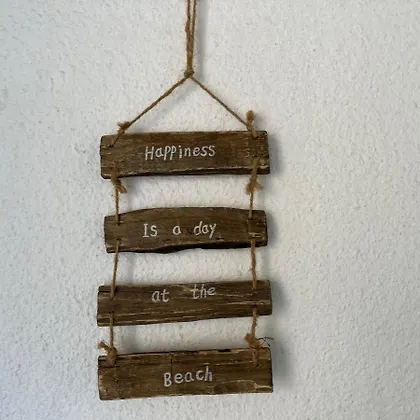 Happiness
Is a day
at the
Beach